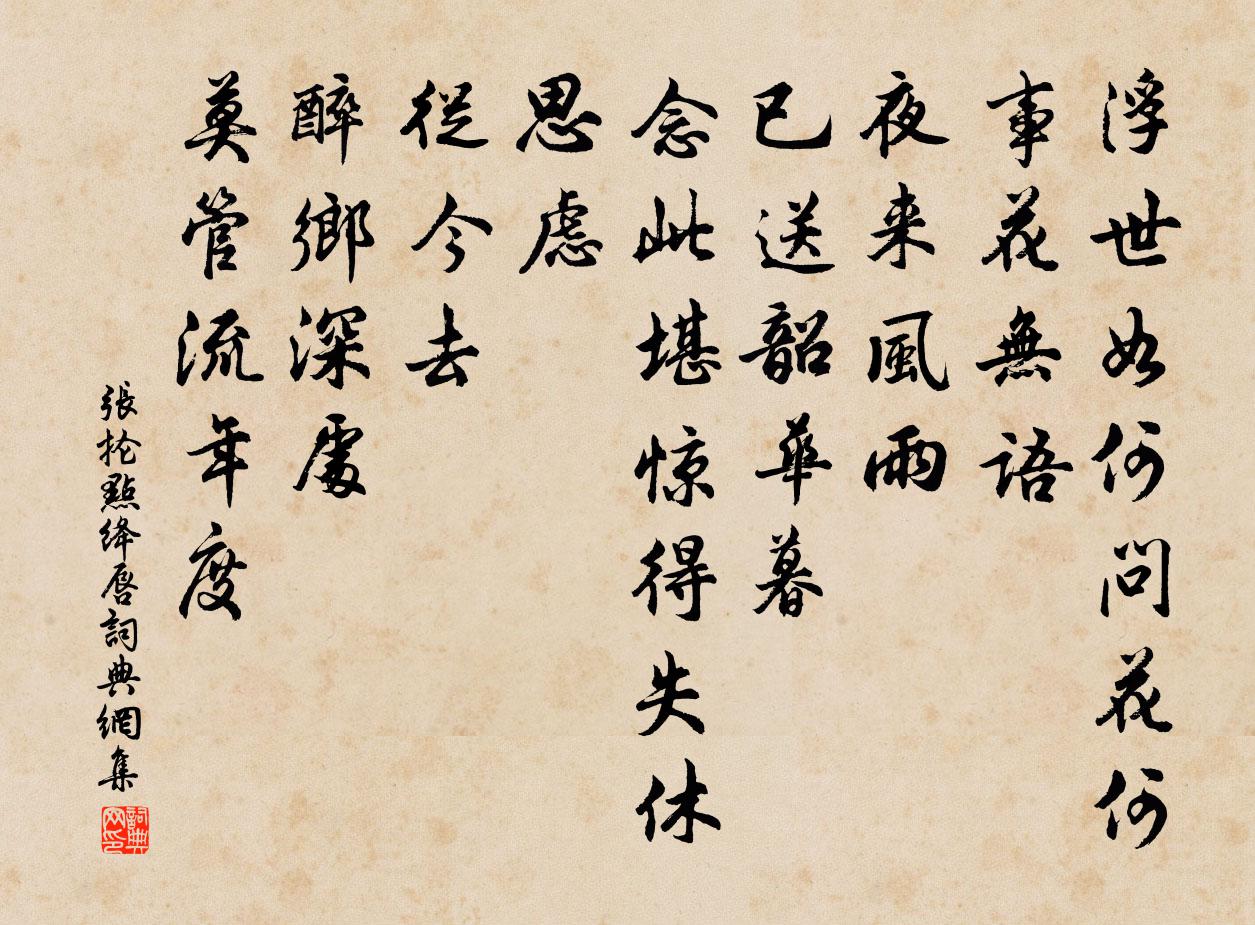 浮世如何問花何
事花無語
夜来風雨
已送韶華暮
念此堪惊得失休
思慮
從今去
醉鄉深處
莫管流年度
張抡點绛唇詞典網集
詞典网印